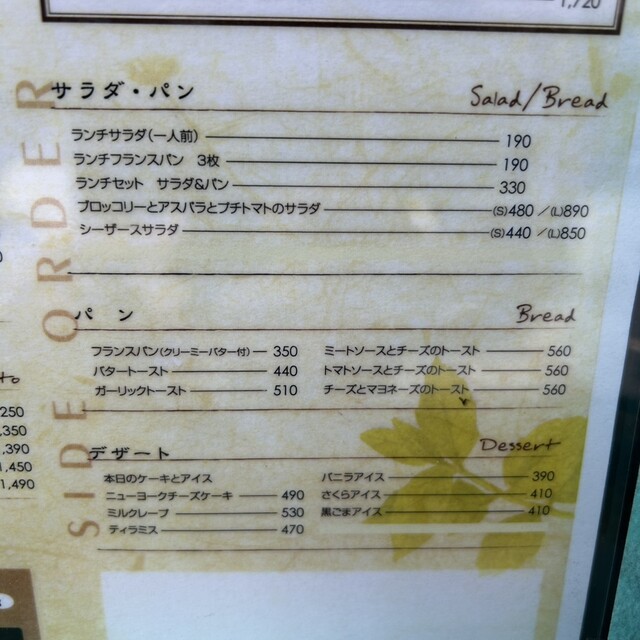 1,720
SIDE ORDER
サラダ・パン Salad/Bread
ランチサラダ(一人前) 190
ランチフランスパン 3枚 190
ランチセット サラダ&パン 330
ブロッコリーとアスパラとプチトマトのサラダ (S)480/(L)890
シーザースサラダ (S)440/(L)850
パン Bread
フランスパン(クリーミーバター付) 350
バタートースト 440
ガーリックトースト 510
ミートソースとチーズのトースト 560
トマトソースとチーズのトースト 560
チーズとマヨネーズのトースト 560
デザート Dessert
本日のケーキとアイス
ニューヨークチーズケーキ 490
ミルクレープ 530
ティラミス 470
バニラアイス 390
さくらアイス 410
黒ごまアイス 410
250
,350
,390
1,450
1,490